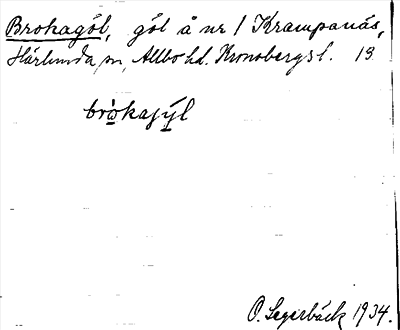 Brokagöl, göl å nr 1 Krampanäs,
Härlunda sn, Allbo hd. Kronobergs l. 13
bròkajýl
O. Segerbäck 1934.